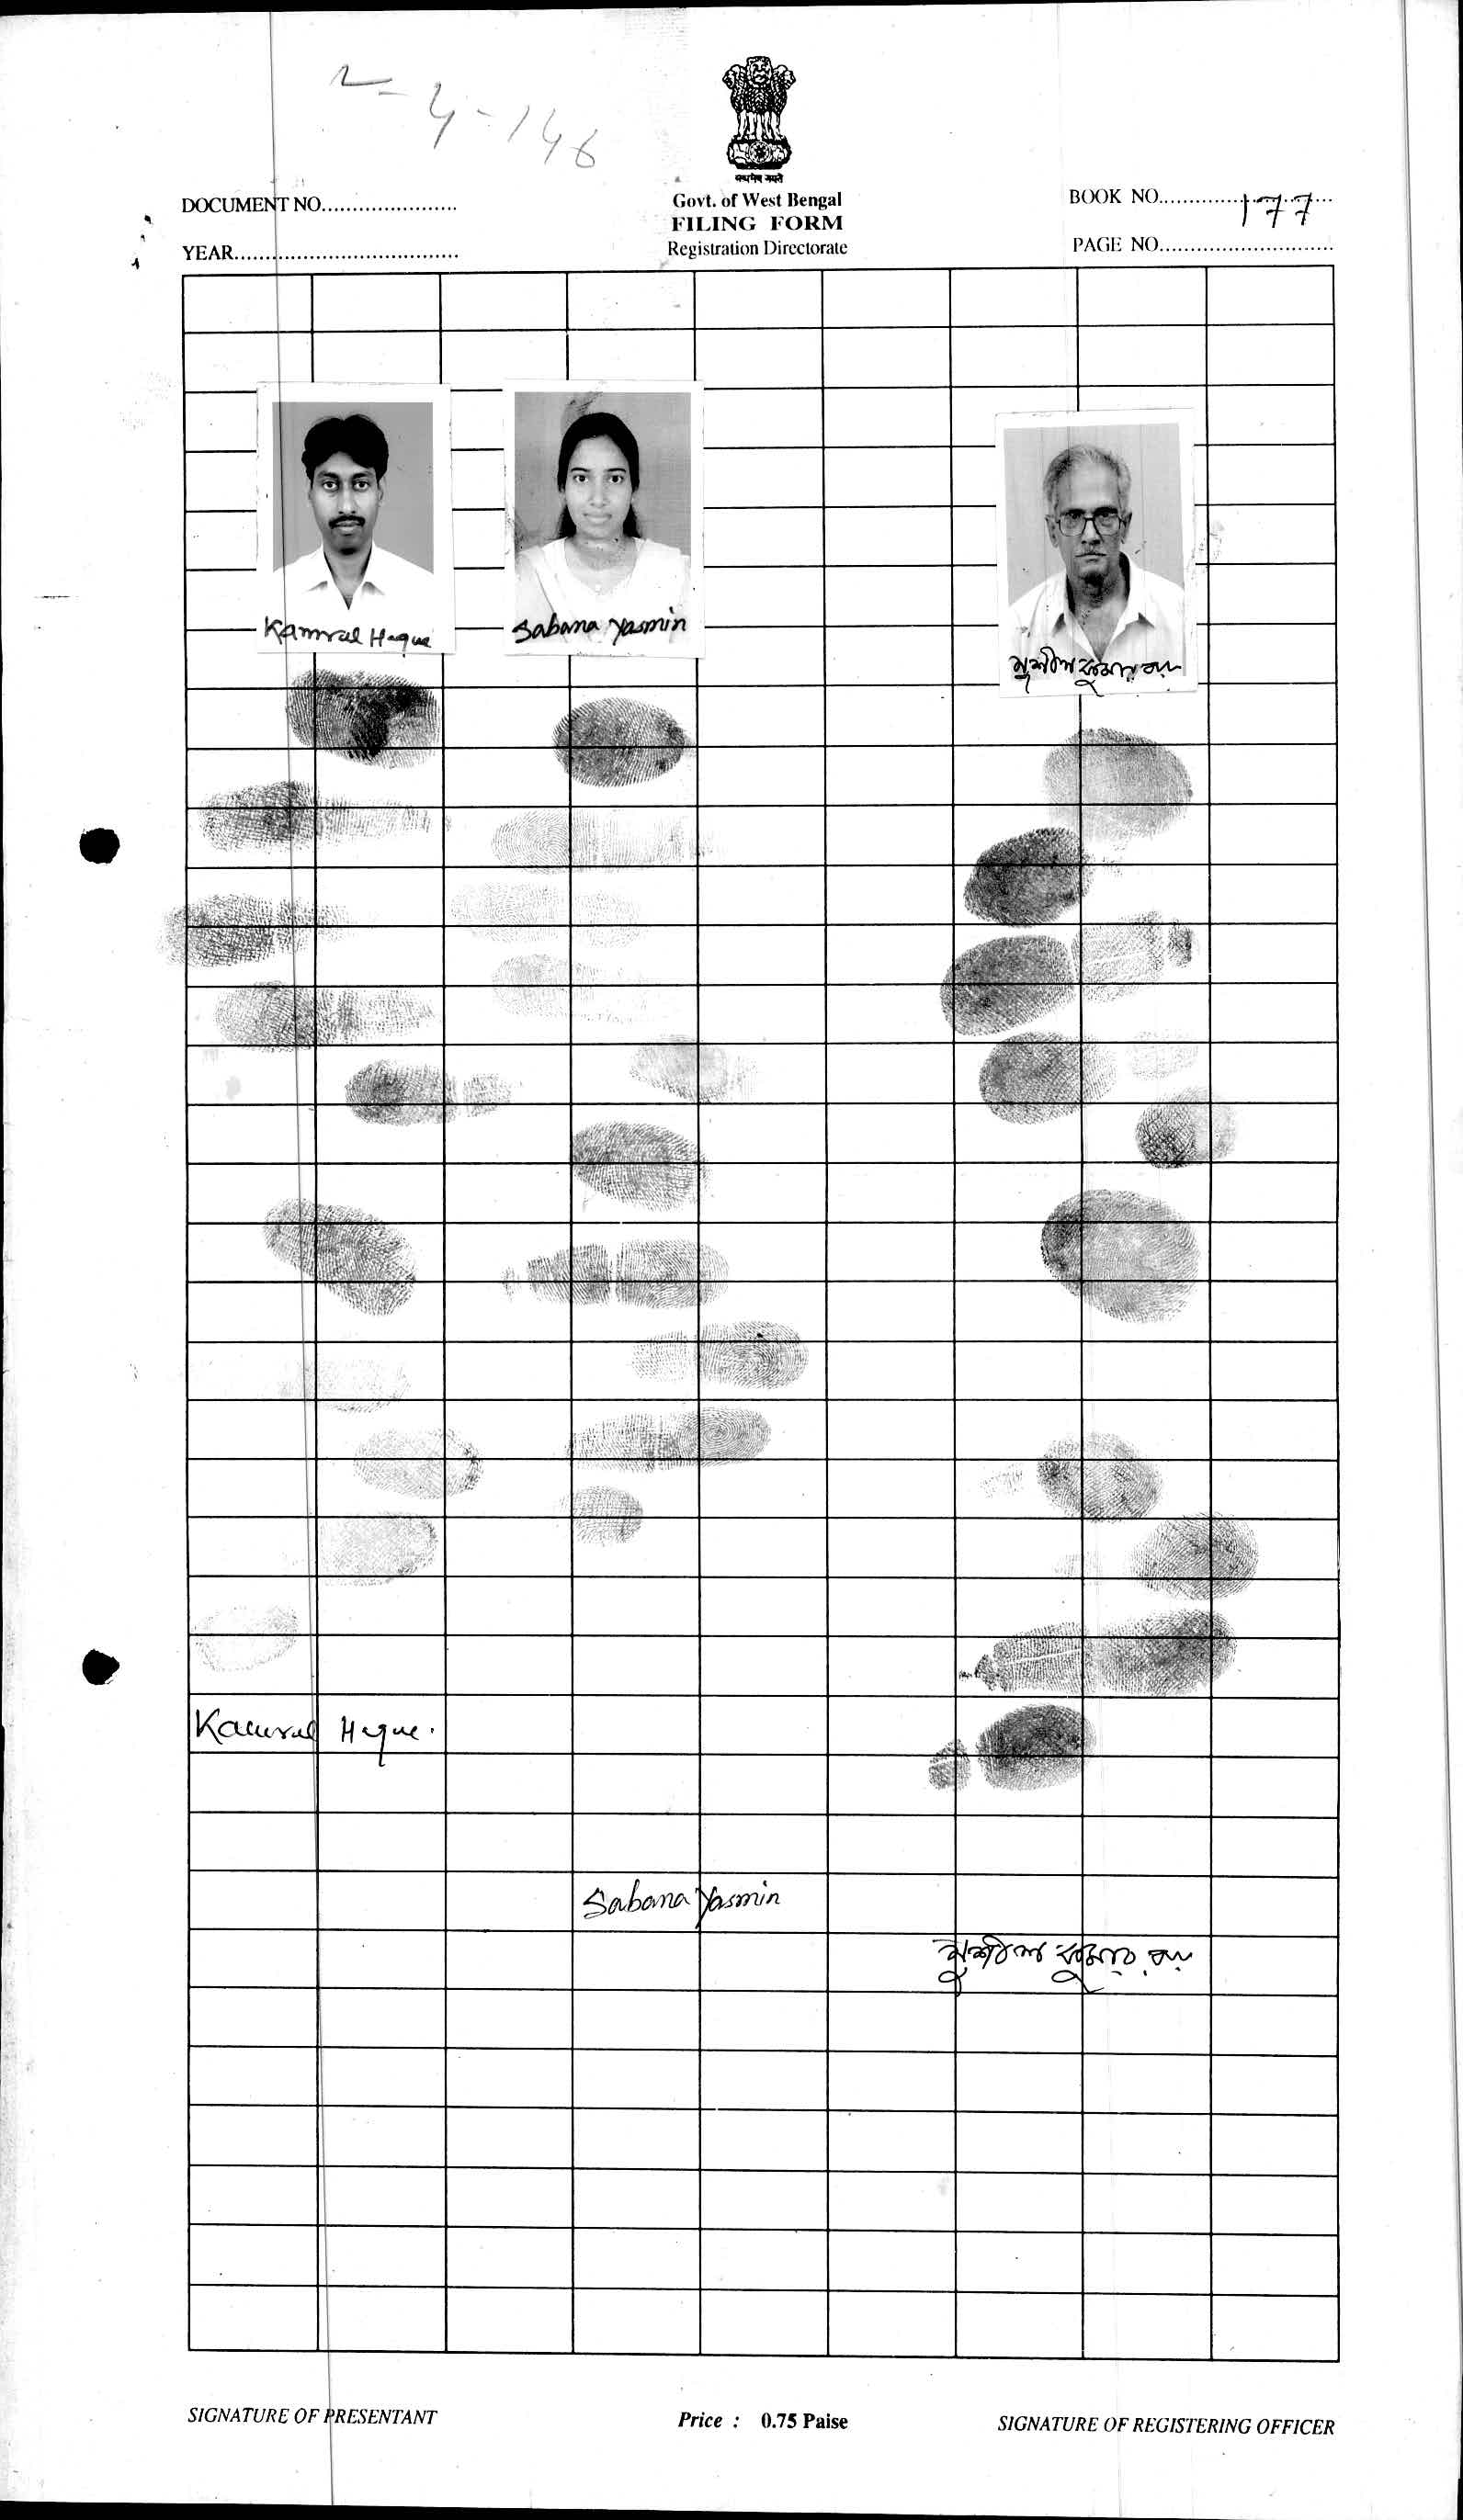 2-4-146
सत्यमेव जयते
Govt. of West Bengal
FILING FORM
Registration Directorate
DOCUMENT NO......................
YEAR...................................
BOOK NO............................
177
PAGE NO............................
Kamrul Haque
Sabana Yasmin
সুশীল কুমার
Kamrul Haque.
Sabana Yasmin
সুশীল কুমার
SIGNATURE OF PRESENTANT
Price : 0.75 Paise
SIGNATURE OF REGISTERING OFFICER